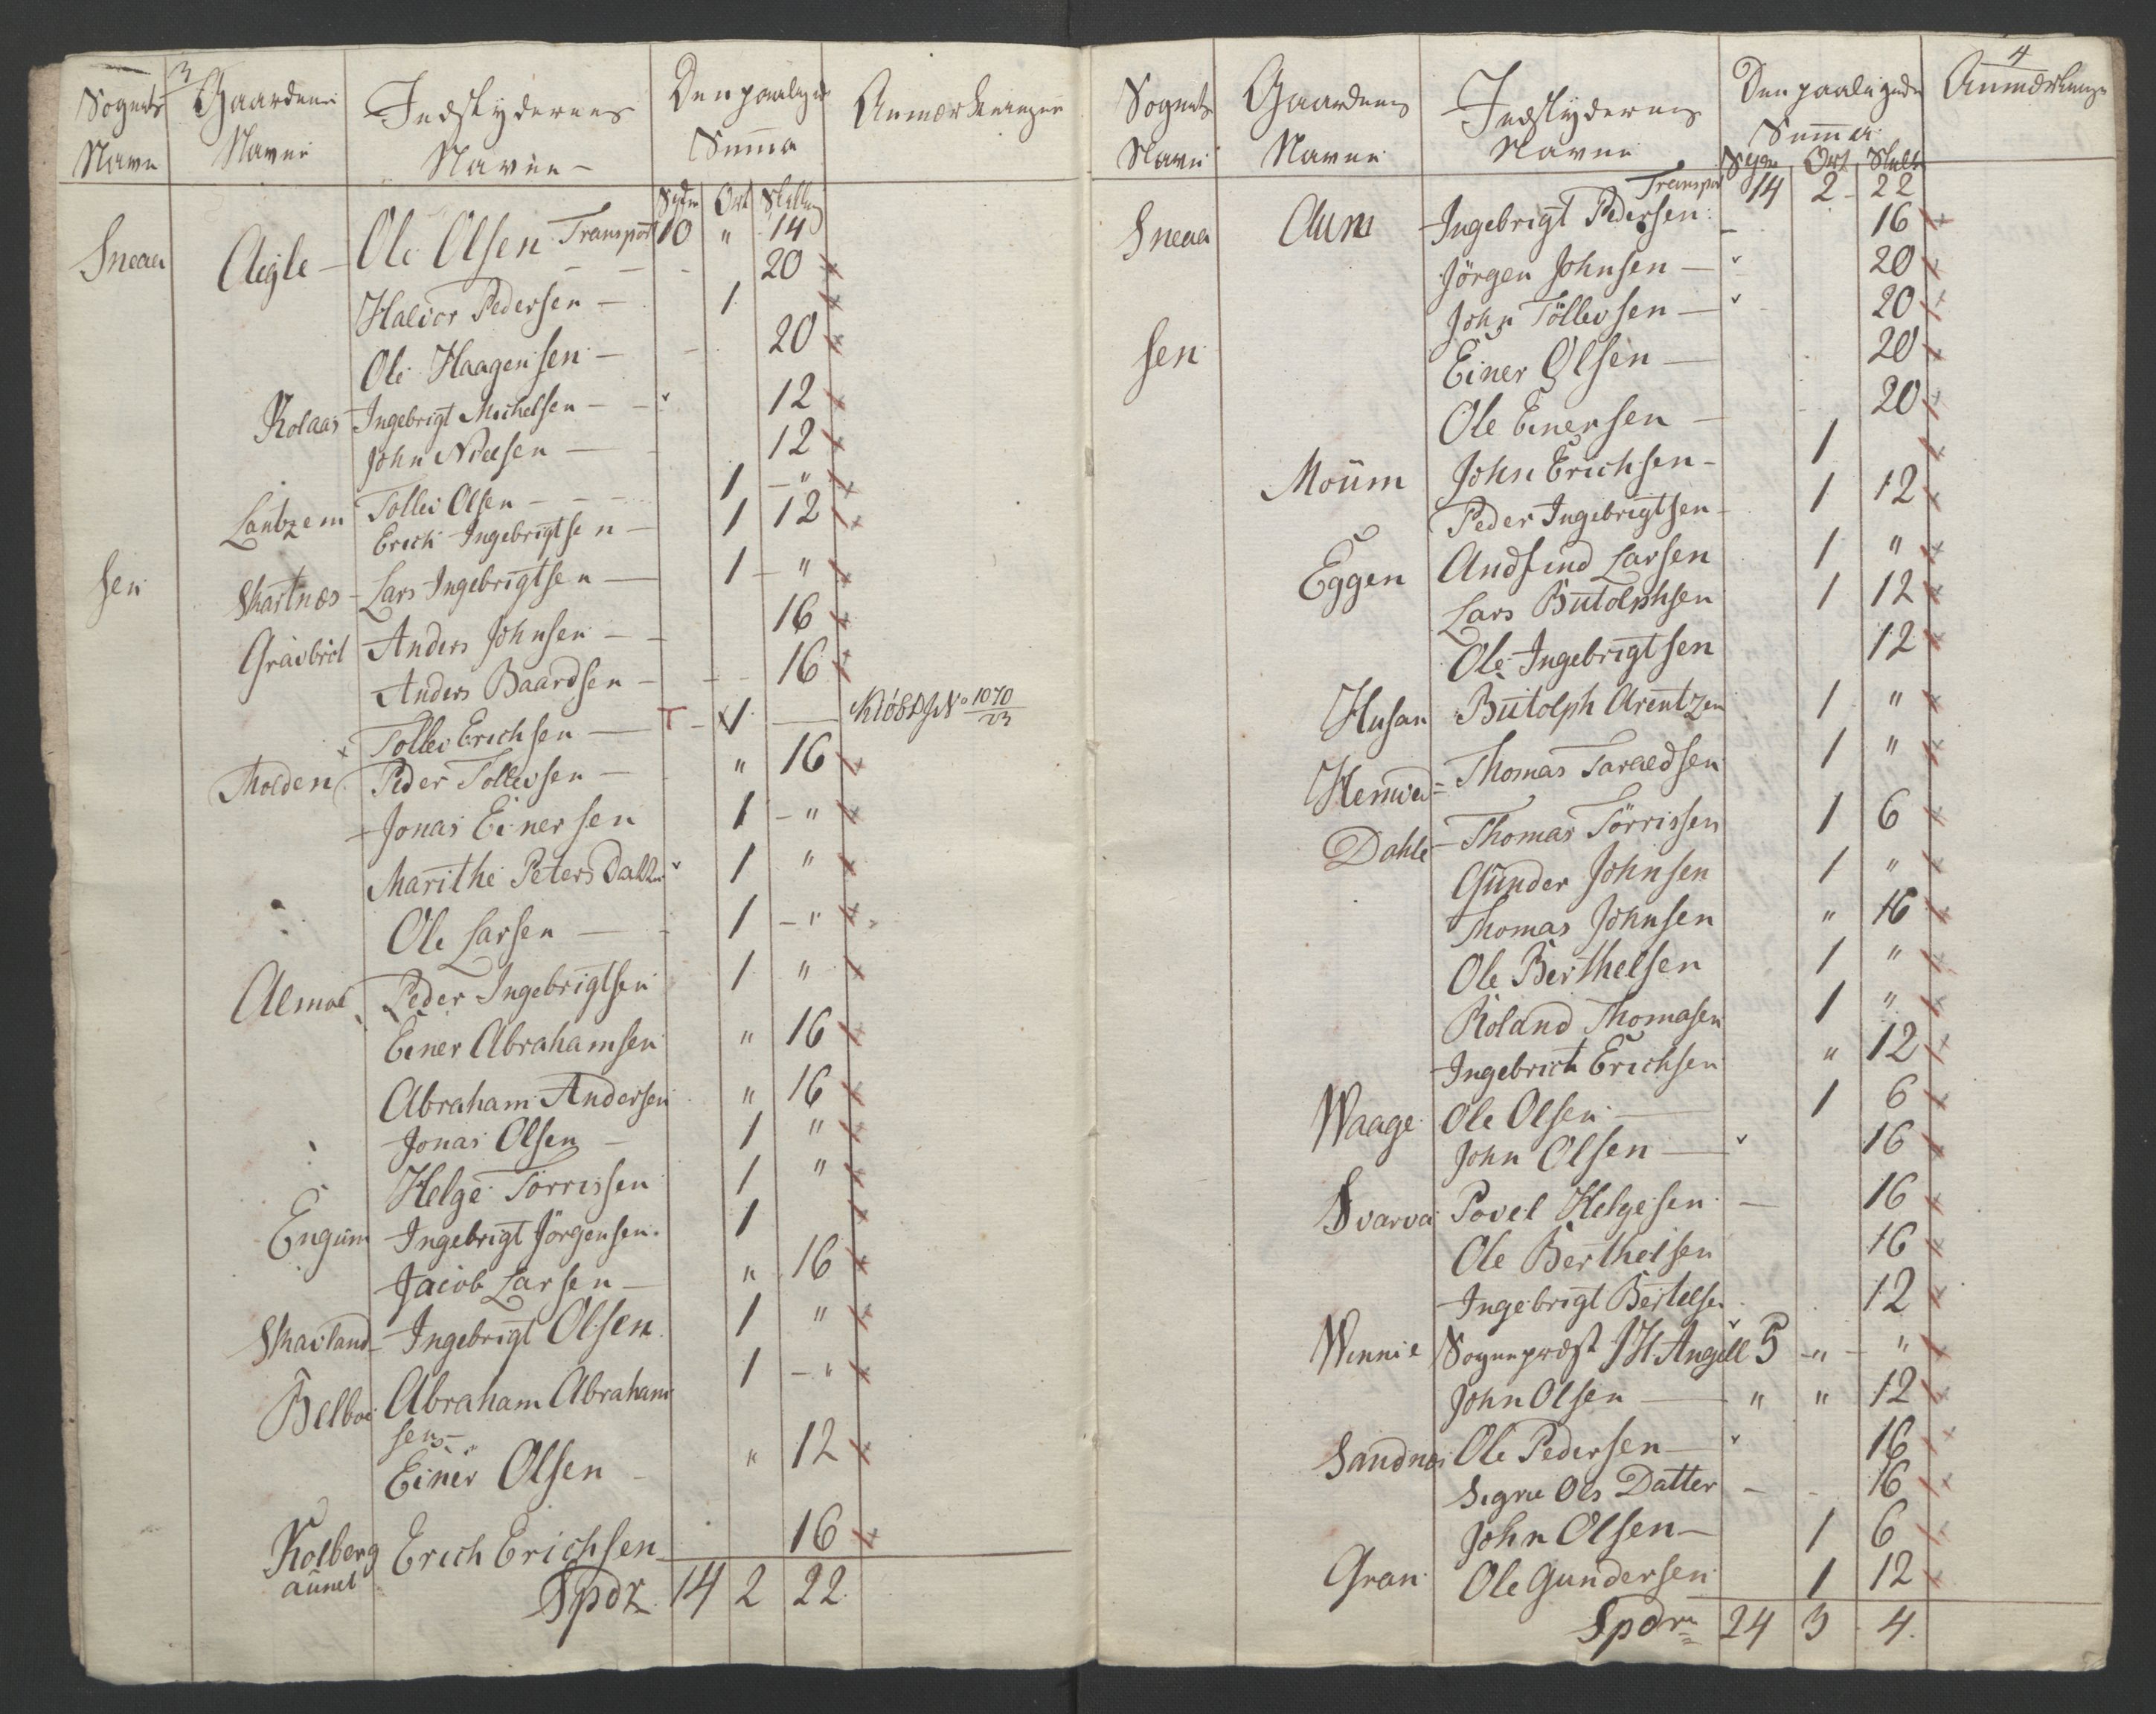 3
Sognets Navn | Gaardens Navne | Indskydernes Navne – | Den paalignede Summa | Anmærkninger
Spdr | Ort | Skilling
Transport 10 " 14
Sneaa Aigle – Ole Olsen – – – 20
Halvor Pedersen – 1
Ole Haagensen – 20
Kolaas Ingebrigt Michelsen – – 12
John Nielsen – 12
Lautzem Tollev Olsen – – – 1 – "
Erich Ingebrigtsen – 1 12
sen Skartnæs – Lars Ingebrigtsen – 1 – "
Graabröl Anders Johnsen – – 16
Anders Baardsen – 16
x Tollev Erichsen – 1 — KiöbD. No 1070/23
Molden Peder Tollevsen – " 16
Jonas Einersen 1 – "
Marithe Peters Datter 1 "
Ole Larsen – 1 – "
Almoe Peder Ingebrigtsen 1 "
Einer Abrahamsen " 16
Abraham Andersen " 16
Jonas Olsen – 1 "
Helge Törrissen 1 "
Engum Ingebrigt Jörgensen. 1
Jacob Larsen – " 16
Skavland – Ingebrigt Olsen 1 "
Belboe Abraham Abraham 1 – "
sen –
Einer Olsen – " 12
Kolberg Erich Erichsen 16
aunet
Spdr 14 2 22
4
Sognets Navn | Gaardens Navne | Indskydernes Navne | Den paalignede Summa | Anmærkninger
Spdr | Ort | Skill
Transport 14 2 22
Sneaa Aum Ingebrigt Pedersen – 16
Jörgen Johnsen – 20
John Töllevsen – 20
sen Einer Olsen – 20
Ole Einersen – 20
Moüm John Erichsen – 1
Peder Ingebrigtsen – 1 12
Eggen Andfind Larsen 1 "
Lars Butolphsen 1 12
Ole Ingebrigtsen 12
Husan Butolph Arentzen 1 "
Hemved = Thomas Taraldsen 1 "
Dahle – Thomas Törrissen 1 6
Gunder Johnsen 1 "
Thomas Johnsen " 16
Ole Berthelsen 1 "
Roland Thomasen 1 "
Ingebricht Erichsen " 12
Waage Ole Olsen – 1 6
John Olsen – 16
Svarva Povel Helgesen – 16
Ole Berthelsen 16
Ingebrigt Bertelsen 12
Winnie Sognepræst J H Angell 5 – " – "
John Olsen – " " 12
Sandnæs Ole Pedersen – 16
Sigrie Ols Datter – – 16
John Olsen – 1 6
Gran Ole Gundersen 1 12
Spdr 24 3 4